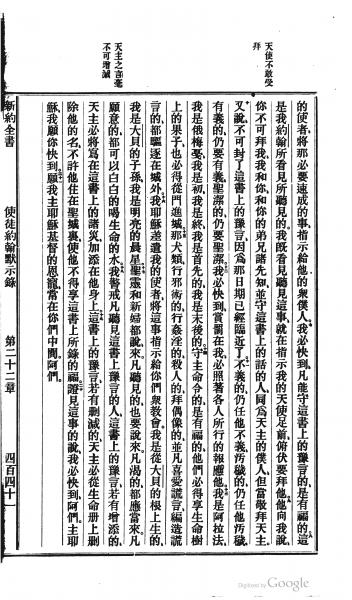 天使不敢受
拜
天主之言毫
不可增減
的使者將那必要速成的事指示給他的衆僕人我必快到凡能守這書上的豫言的是有福的這
是我約翰所看見所聽見的我既看見聽見這事就在指示我的天使足前俯伏要拜他他向我說
你不可拜我我和你和你的弟兄諸先知並守這書上的話的人同爲天主的僕人但當敬拜天主
又說不可封了這書上的豫言因爲那日期已經臨近了不義的仍任他不義汚穢的仍任他汚穢
有義的仍要爲義聖潔的仍要聖潔我必快到賞罰在我必照著各人所行的報應他我是阿拉法
我是俄梅戛我是初我是終我是首先的我是末後的守主命令的是有福的他們必得享生命樹
上的果子也必得從門進城那犬類行邪術的行姦淫的殺人的拜偶像的並凡喜愛謊言編造謊
言的都驅逐在城外我耶穌差遣我的使者將這事指示給你們衆教會我是從大貝的根上生的
我是大貝的子孫我是明亮的晨星聖靈和新婦都說來凡聽見的也要說來凡渴的都應當來凡
願意的都可以白白的喝生命的水我警戒凡聽見這書上豫言的人這書上的豫言若有增添的
天主必將寫在這書上的諸災加添在他身上這書上的豫言若有刪減的天主必從生命册上刪
除他的名不許他住在聖城裏使他不得享這書上所錄的福證見這事的說我必快到阿們主耶
穌我願你快到願我主耶穌基督的恩寵常在你們中間阿們
新約全書 使徒約翰默示錄 第二十二章 四百四十一
Digitized by Google